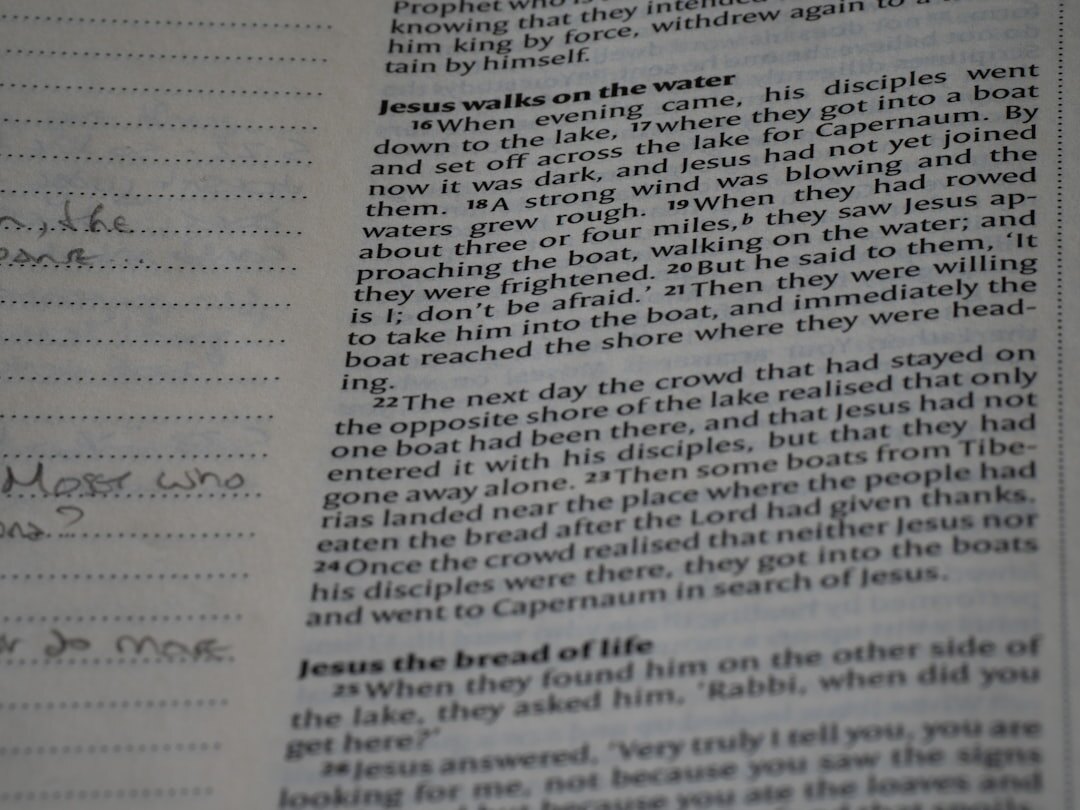 Prophet who is
knowing that they intended
him king by force, withdrew again to a
tain by himself.
Jesus walks on the water
16 When evening came, his disciples went
down to the lake, 17 where they got into a boat
and set off across the lake for Capernaum. By
now it was dark, and Jesus had not yet joined
them. 18 A strong wind was blowing and the
waters grew rough. 19 When they had rowed
about three or four miles,b they saw Jesus ap-
proaching the boat, walking on the water; and
they were frightened. 20 But he said to them, ‘It
is I; don’t be afraid.’ 21 Then they were willing
to take him into the boat, and immediately the
boat reached the shore where they were head-
ing.
22 The next day the crowd that had stayed on
the opposite shore of the lake realised that only
one boat had been there, and that Jesus had not
entered it with his disciples, but that they had
gone away alone. 23 Then some boats from Tibe-
rias landed near the place where the people had
eaten the bread after the Lord had given thanks.
24 Once the crowd realised that neither Jesus nor
his disciples were there, they got into the boats
and went to Capernaum in search of Jesus.
Jesus the bread of life
25 When they found him on the other side of
the lake, they asked him, ‘Rabbi, when did you
get here?’
26 Jesus answered, ‘Very truly I tell you, you are
looking for me, not because you saw the signs
but because you ate the loaves and
the
who
to more